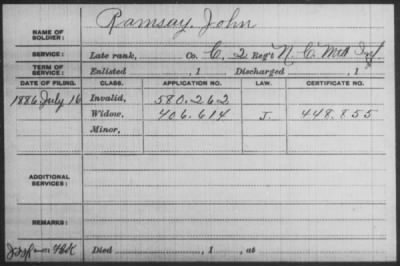 Ramsay, John
NAME OF SOLDIER:
SERVICE: Late rank, Co. C, 2 Reg't N. C. Mtd Inf.
TERM OF SERVICE: Enlisted , 1 Discharged , 1
DATE OF FILING. CLASS. APPLICATION NO. LAW. CERTIFICATE NO.
1886 July 16 Invalid, 580.262
Widow, 406.614 J. 448.855
Minor,
ADDITIONAL SERVICES:
REMARKS:
Died , 1 , at